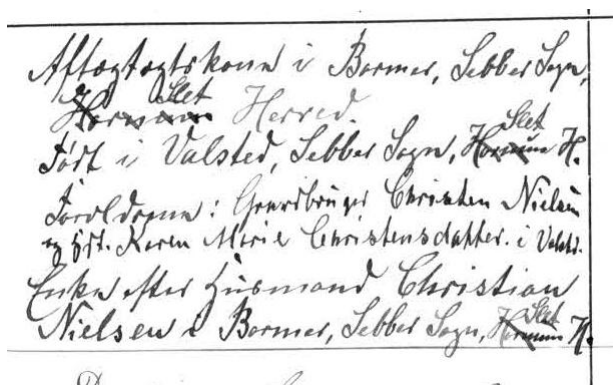 Aftægtægtskone i Barmer, Sebber Sogn,
Slet
Hornum Herred.
Slet
Født i Valsted, Sebber Sogn, Hornum H.
Forældrene: Gaardbruger Christen Nielsen
og Hst. Karen Marie Christensdatter i Valsted.
Enke efter Husmand Christian
Slet
Nielsen i Barmer, Sebber Sogn, Hornum H.